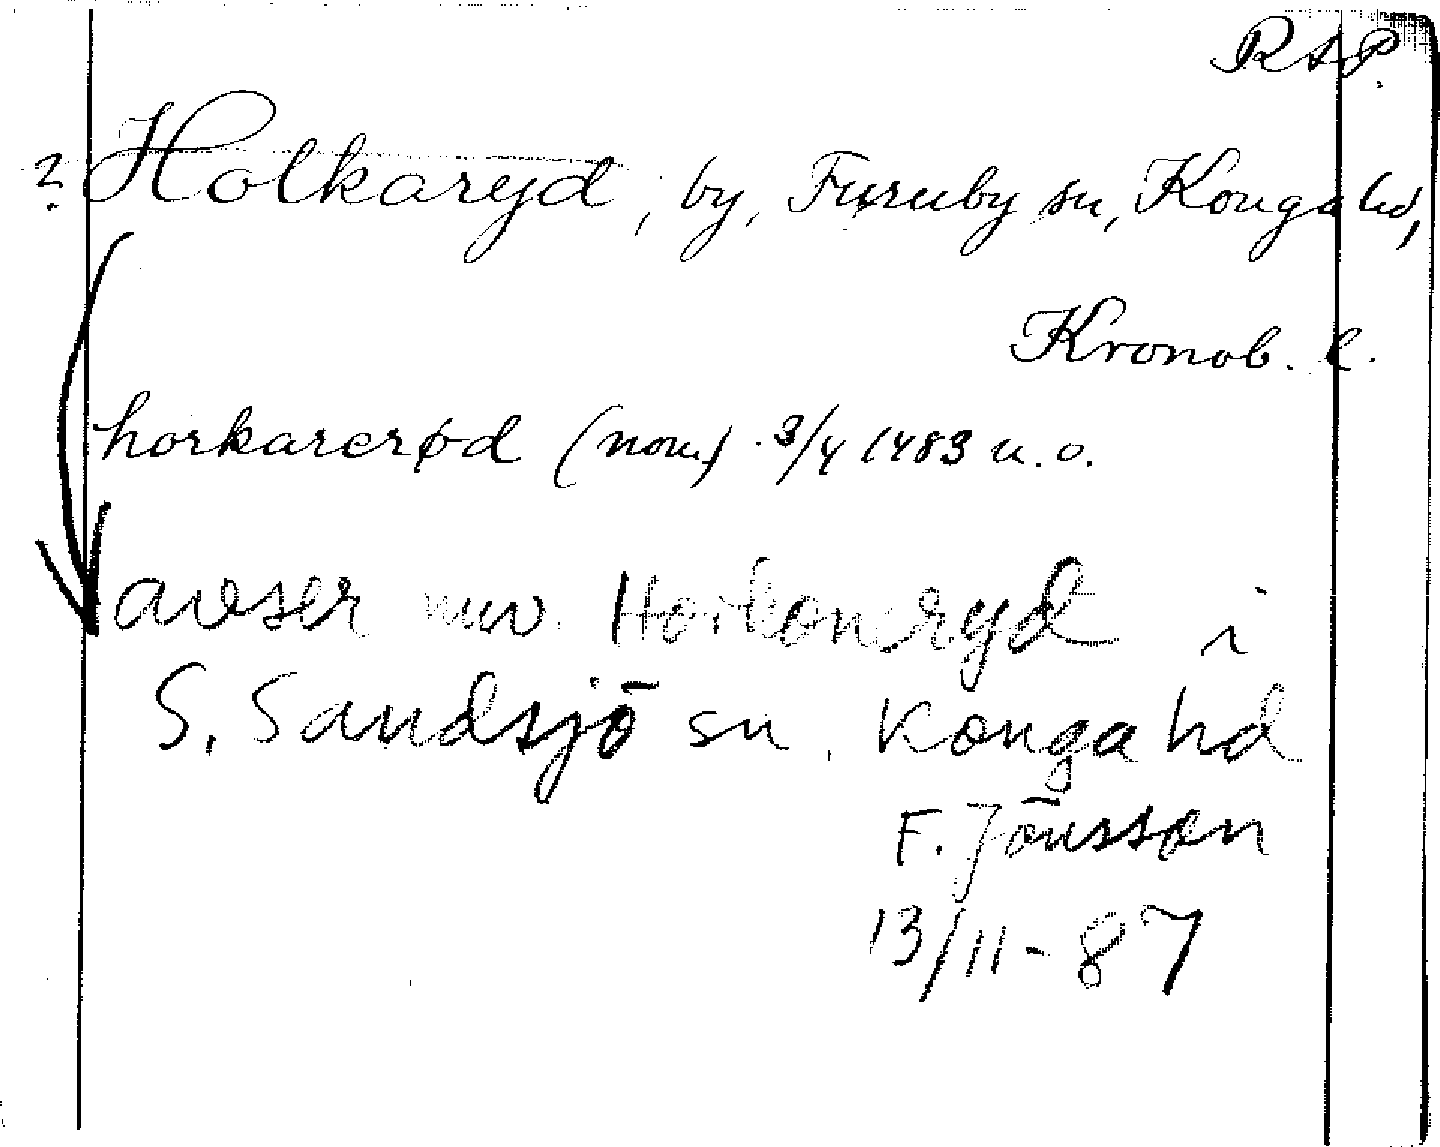 RAP.
? Holkaryd, by, Furuby sn, Konga hd,
Kronob. l.
horkarerød (nom) 3/4 1483 u. o.
avser nuv. Horkoneryd i
S. Sandsjö sn, Konga hd
F. Jönsson
13/11-87